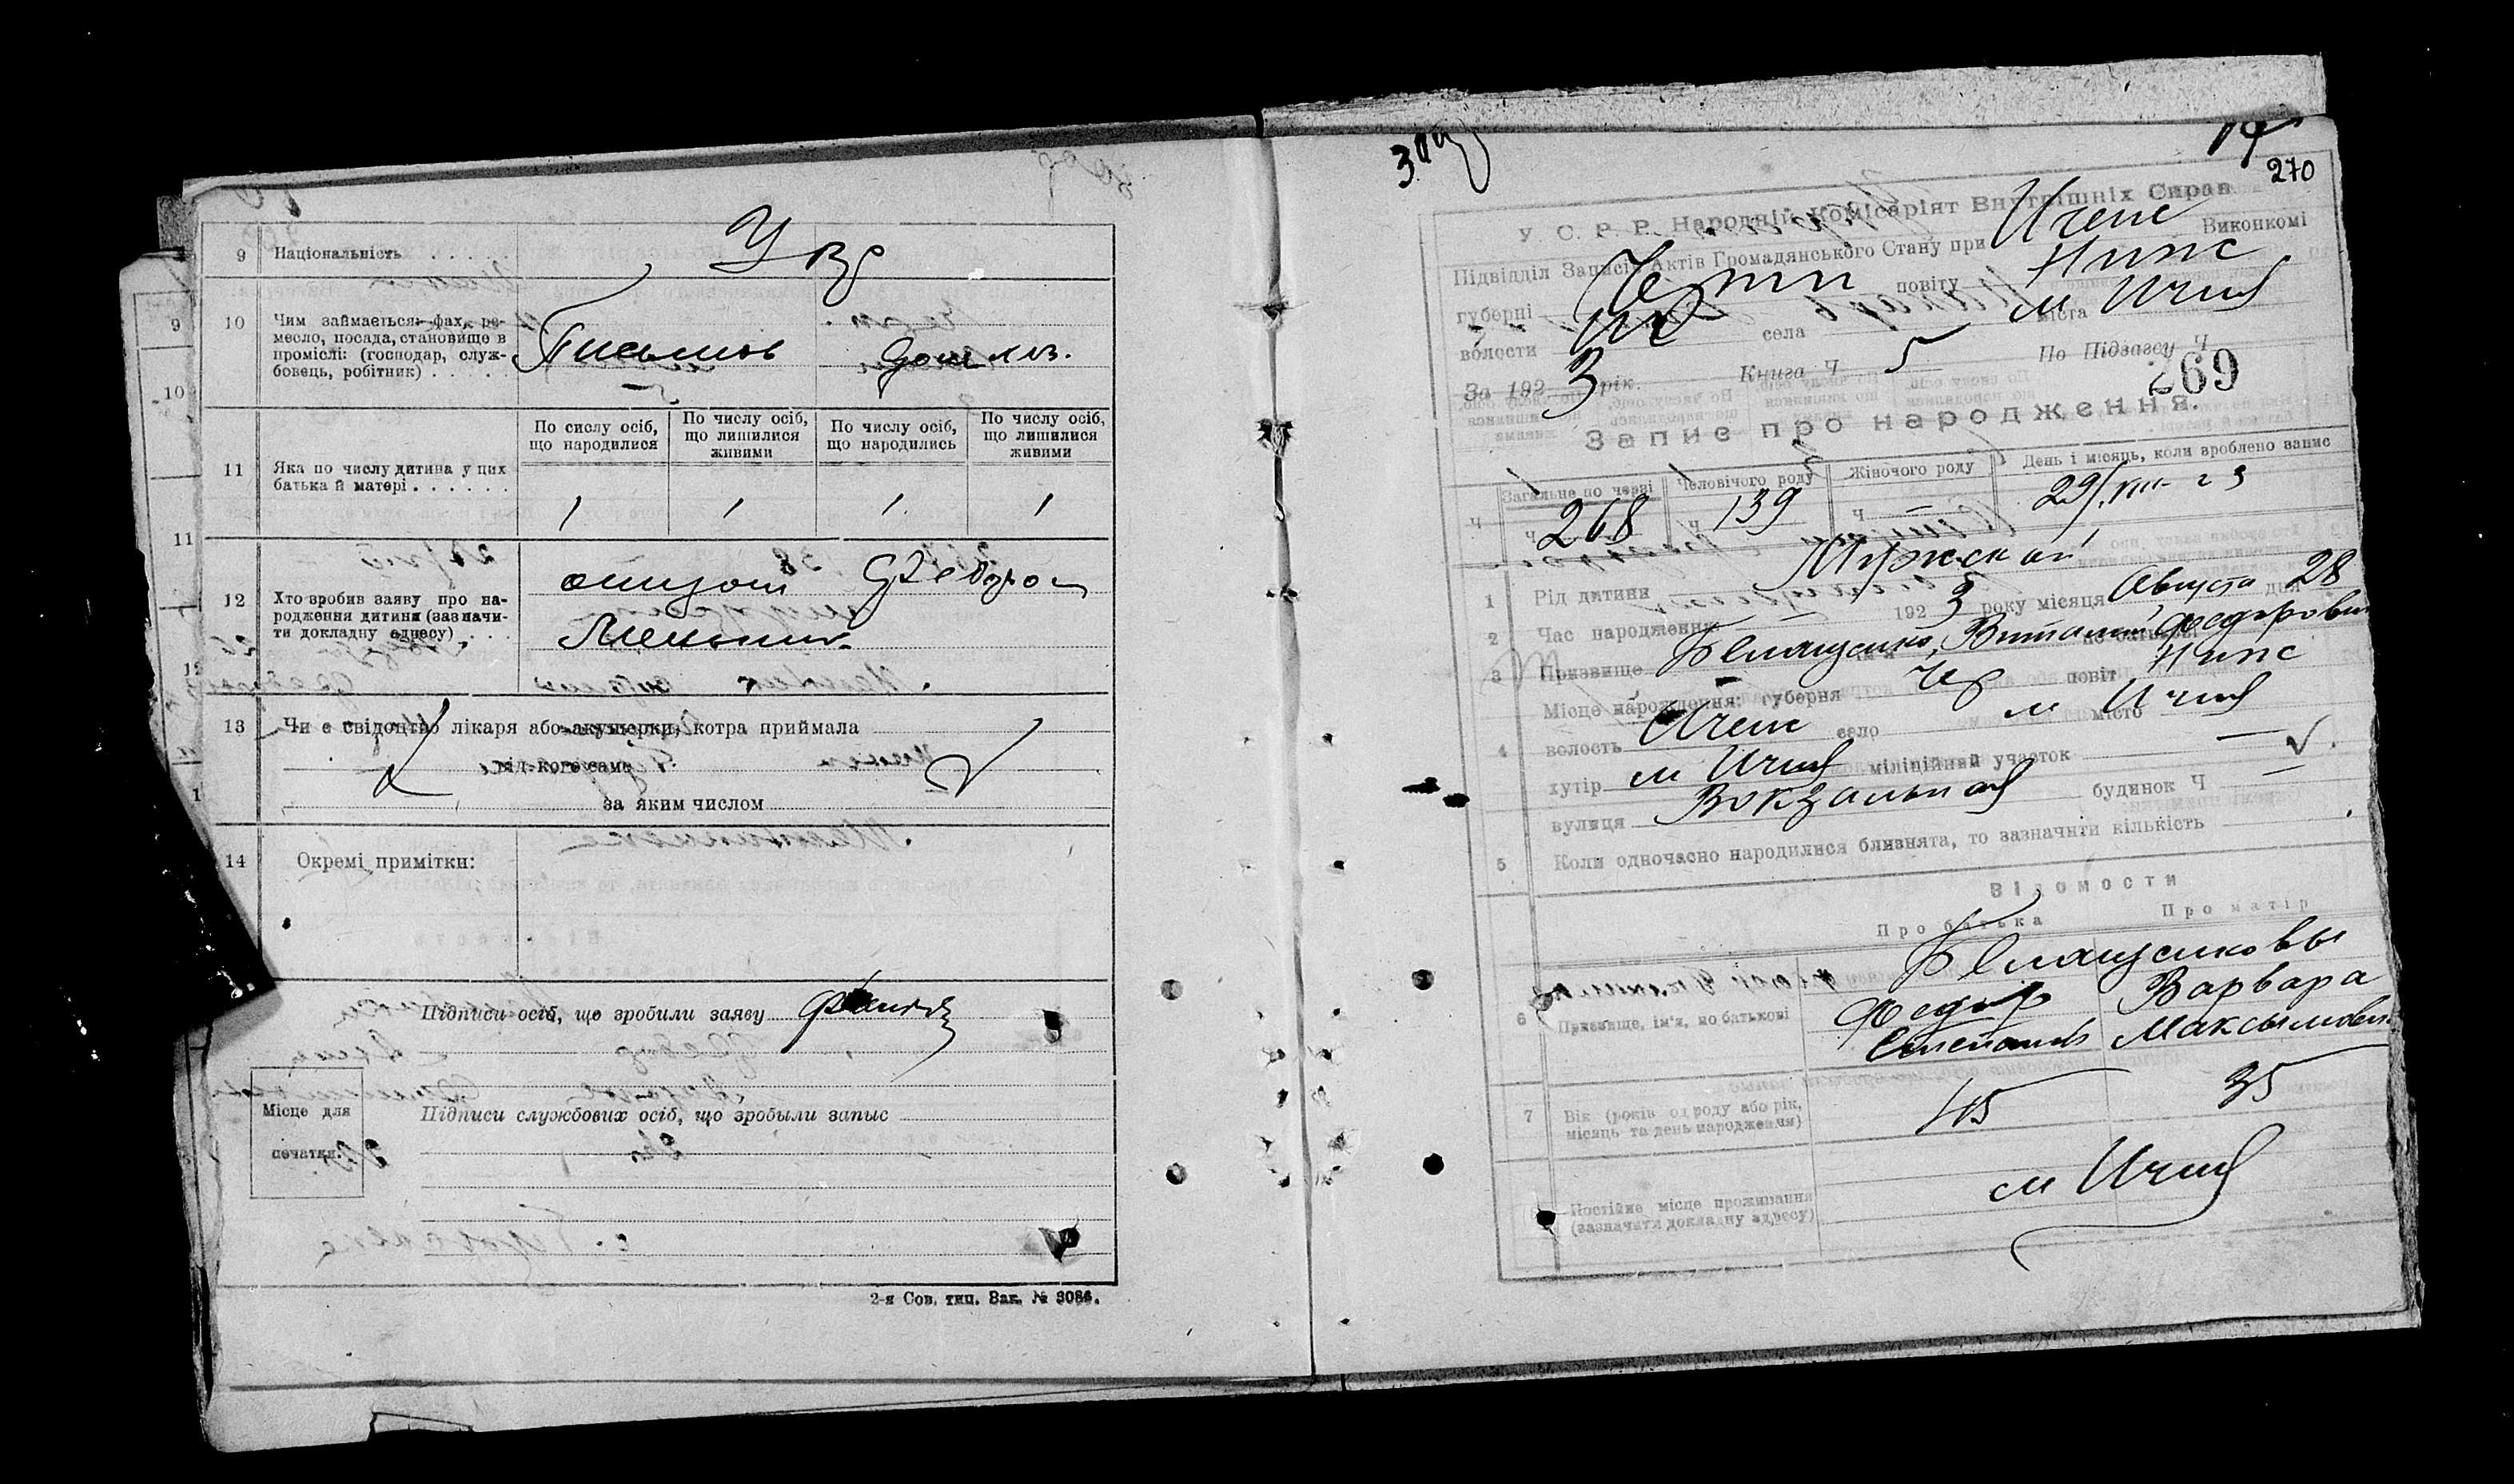 9 Національність . . . . . .
10 Чим займається: фах, ре-
месло, посада, становище в
проміслі: (господар, служ-
бовець, робітник) . . . . .
11 Яка по числу дитина у цих
батька й матері . . . . . .
По сислу осіб, що народилися
По числу осіб, що лишилися живими
По числу осіб, що народились
По числу осіб, що лишилися живими
1 1 1 1
12 Хто зробив заяву про на-
родження дитини (зазначи-
ти докладну адресу) . . .
отцом Федором
13 Чи є свідоцтво лікаря або акушерки, котра приймала
від кого саме
за яким числом
14 Окремі примітки:
Підписи осіб, що зробили заяву
Місце для
печатки.
Підписи службових осіб, що зробыли запыс
2-я Сов. тип. Зак. № 3086.
270
У С. Р. Р. Народній Комісаріят Внутрішніх Справ
Підвідділ Записів Актів Громадянського Стану при Ичен Виконкомі
губерні Черни повіту Нипс
волости села м Ичня міста
За 192 3 рік. Книга Ч 5 По Підзагсу Ч
269
Запис про народження.
Загальне по черзі Человічого роду Жіночого роду День і місяць, коли зроблено запис
Ч Ч 268 Ч 139 Ч 29/VIII 23
1 Рід дитини Мужской
2 Час народження 192 3 року місяця Августа дня 28
3 Призвище Белащенко, Виталий Федорович
4 Місце народження: губерня Чер повіт Нипс
волость Ичен село м Ичня місто
хутір м Ичня міліційний участок
вулиця Вокзальная будинок Ч
5 Коли одночасно народилися близнята, то зазначити кількість
Відомости
Про батька Про матір
Белащенковы
6 Призвище, ім'я, по батькові Федор Варвара
Степанов Максимовна
7 Вік (років од роду або рік,
місяць та день народження) 45 35
Постійне місце проживання
(зазначити докладну адресу) м Ичня